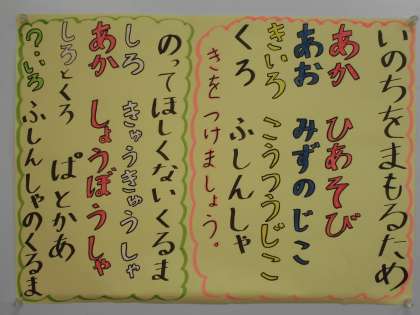 いのちをまもるため
あか ひあそび
あお みずのじこ
きいろ こうつうじこ
くろ ふしんしゃ
きをつけましょう。
のってほしくないくるま
しろ きゅうきゅうしゃ
あか しょうぼうしゃ
しろとくろ ぱとかあ
?いろ ふしんしゃのくるま